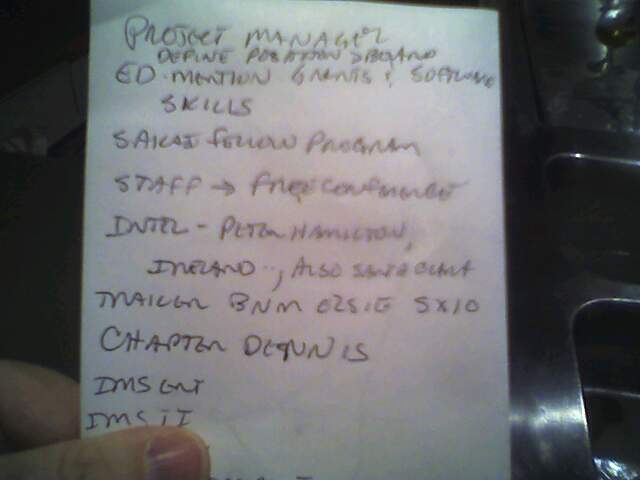 PROJECT MANAGER
DEFINE POSITION > BOARD
ED - MENTION GRANTS & SOFTWARE
SKILLS
SAKAI FELLOW PROGRAM
STAFF → FREE CONFERENCE
INTEL - PETER HAMILTON,
IRELAND .., ALSO SANTA CLARA
TRAILER BNM 5X10
CHAPTER DENNIS
IMS ENT
IMS LI